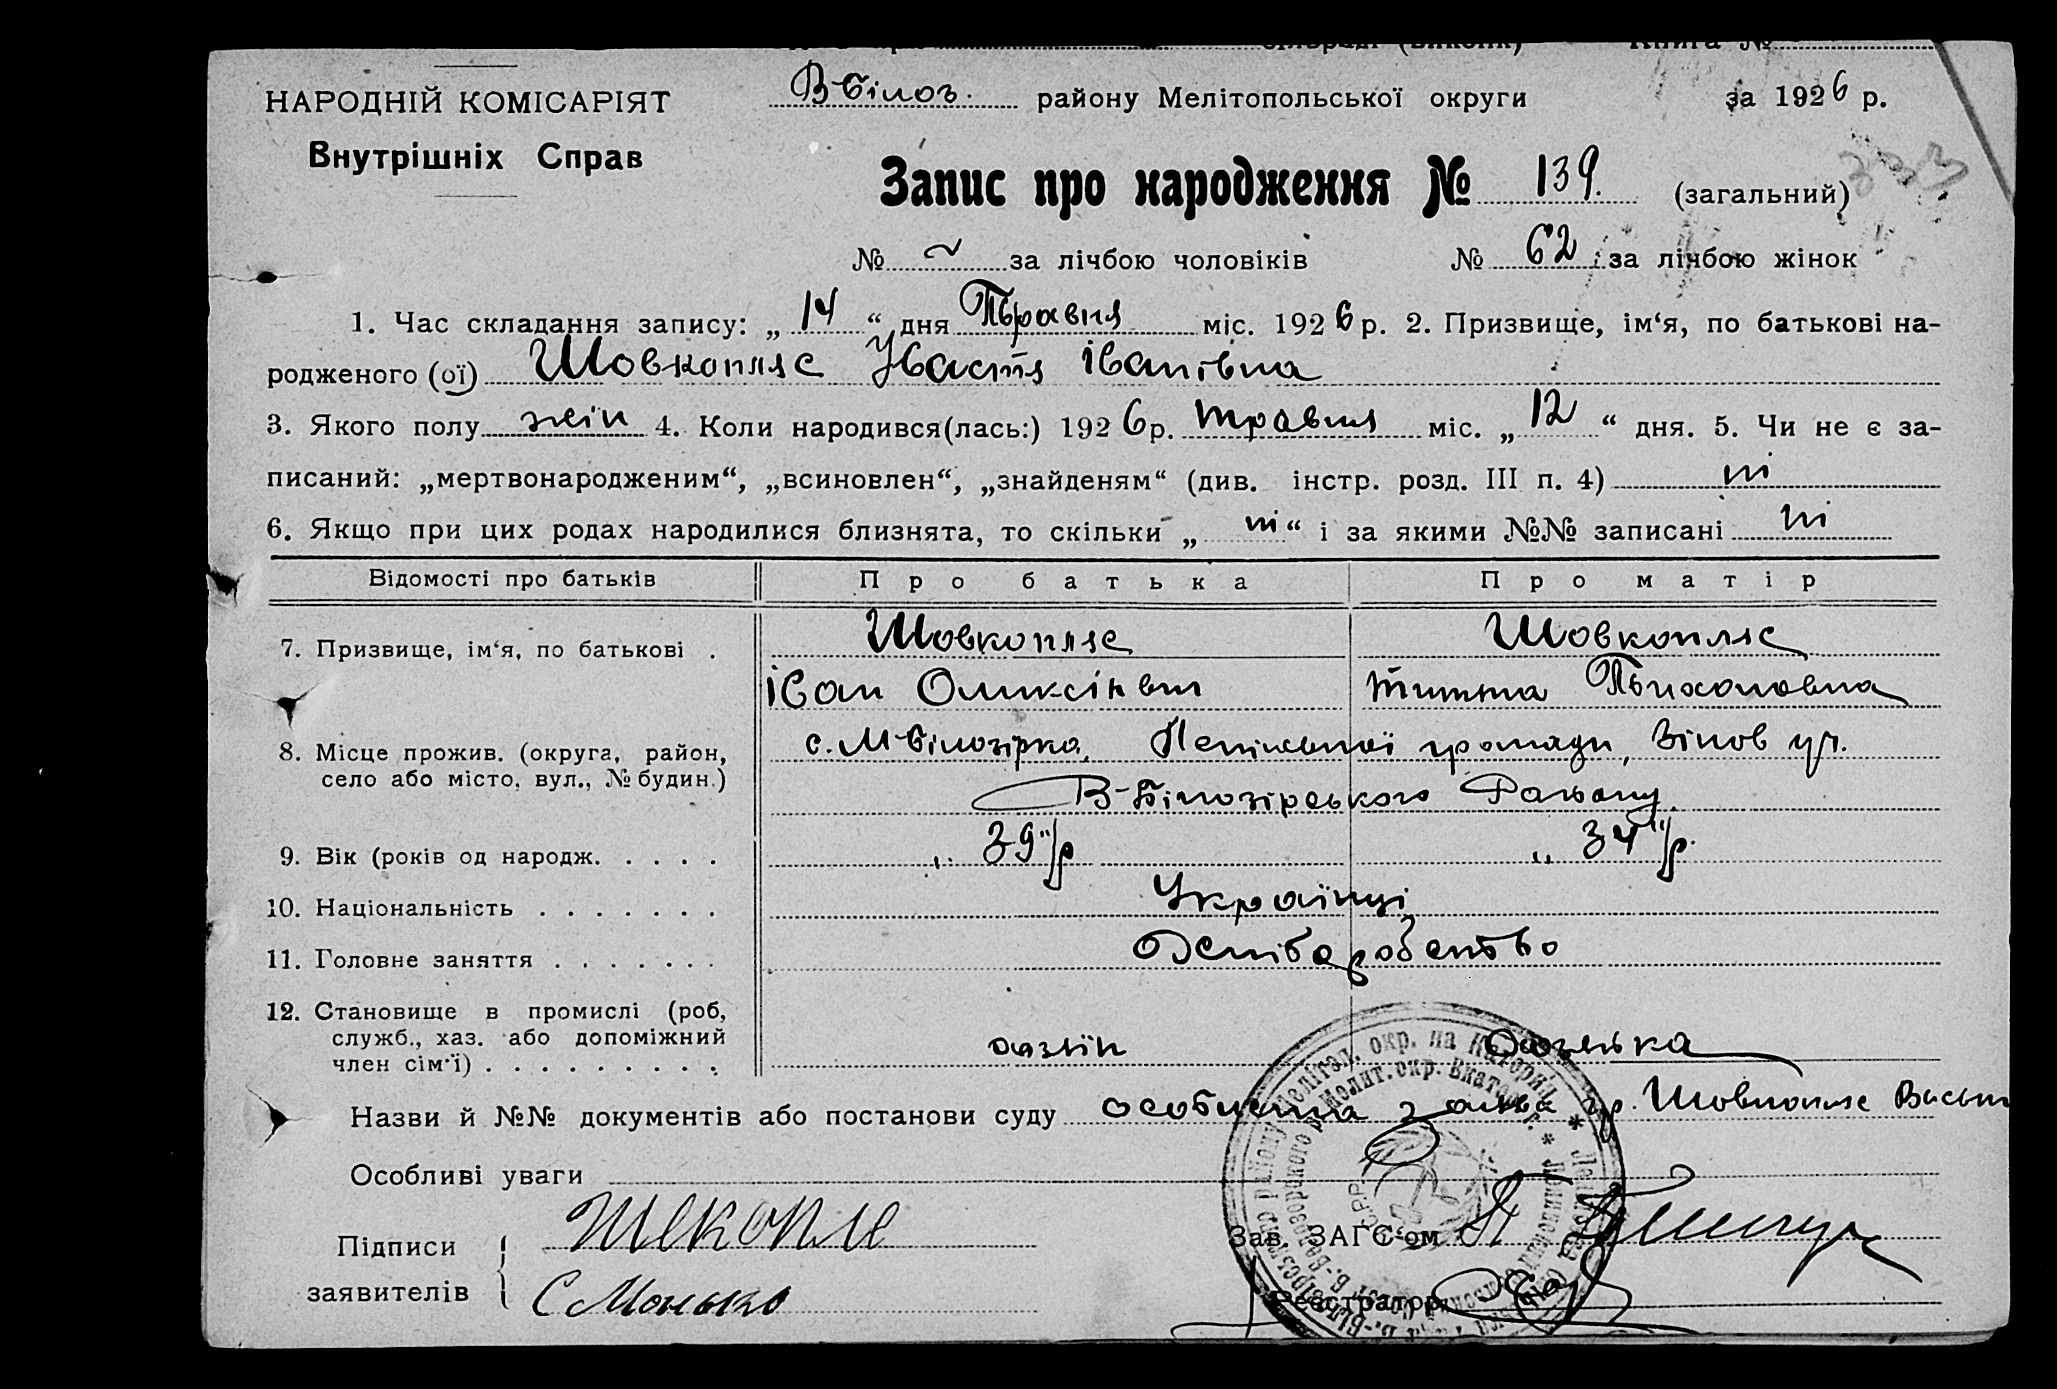 Книга №
В Білоз. району Мелітопольської округи за 1926 р.
НАРОДНІЙ КОМІСАРІЯТ
Внутрішніх Справ
Запис про народження № 139. (загальний)
№ ~ за лічбою чоловіків № 62 за лічбою жінок
1. Час складання запису: „14“ дня Травня міс. 1926 р. 2. Призвище, ім‘я, по батькові на-
родженого (ої) Шовкопляс Івanівна
3. Якого полу жін 4. Коли народився(лась:) 1926 р. травня міс. „12“ дня. 5. Чи не є за-
писаний: „мертвонародженим“, „всиновлен“, „знайденям“ (див. інстр. розд. III п. 4) ні
6. Якщо при цих родах народилися близнята, то скільки „ні“ і за якими №№ записані ні
Відомості про батьків Про батька Про матір
7. Призвище, ім‘я, по батькові . Шовкопляс Шовкопляс
Іван
8. Місце прожив. (округа, район, с. М-Білозірка, громади,
село або місто, вул., № будин.) В-Білозірського Району
9. Вік (років од народж. . . . . „ 39“/р „ 34“/р.
10. Національність . . . . . . . Українці
11. Головне заняття . . . . . . .
12. Становище в промислі (роб,
служб., хаз. або допоміжний
член сім‘ї) . . . . . . . . . .
Назви й №№ документів або постанови суду особиста заява гр. Шовкопляс
Особливі уваги
Підписи Зав. ЗАГС‘ом
заявителів С Монько Реєстратор